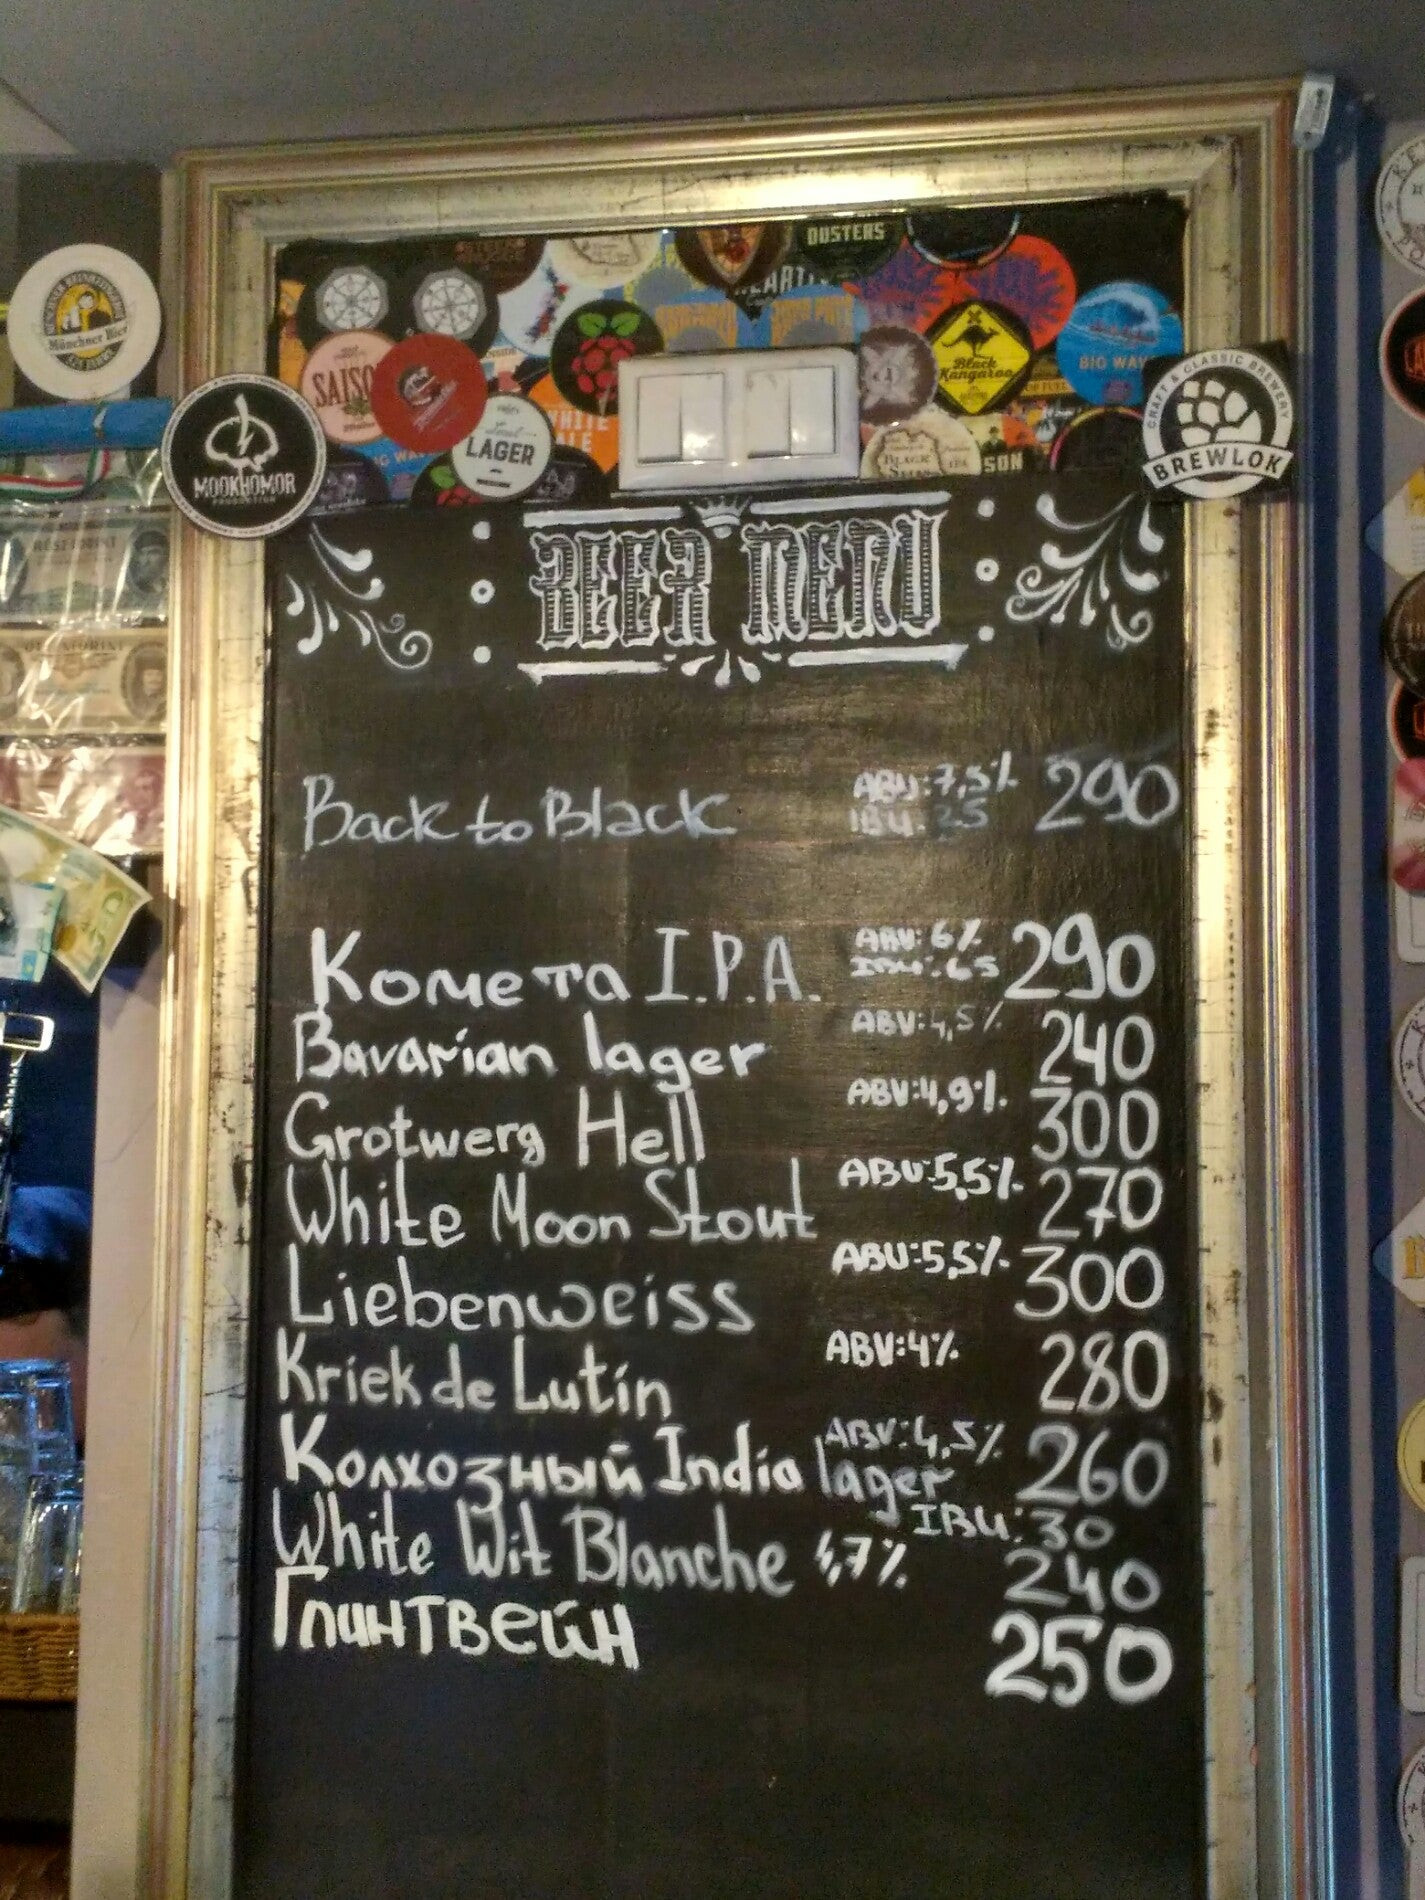 OUSTERS
Münchner Bier
SAISON
Black
Kangaroo
BIG WAVE
LAGER
WHITE
MOOKHOMOR
CRAFT & CLASSIC BREWERY
BREWLOK
BEER MENU
Back to Black ABV:7,5% 290
IBU:25
Комета I.P.A. ABV:6% 290
IBU:65
Bavarian lager ABV:4,5% 240
Grotwerg Hell ABV:4,9% 300
White Moon Stout ABV:5,5% 270
Liebenweiss ABV:5,5% 300
Kriek de Lutin ABV:4% 280
Колхозный India lager ABV:4,5% 260
IBU:30
White Wit Blanche 4,7% 240
Глинтвейн 250